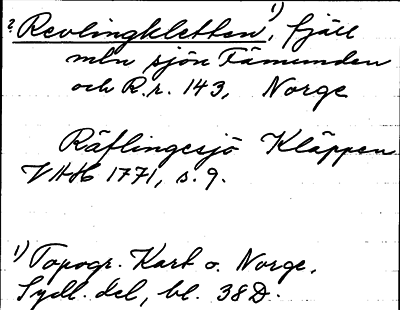 ? Revlingkletten, 1) fjäll
mln sjön Fämunden
och R.r. 143, Norge
Räflingesjö Kläppen
VAH 1771, s. 9.
1) Topogr. Kart o. Norge,
Sydl. del, bl. 38D.